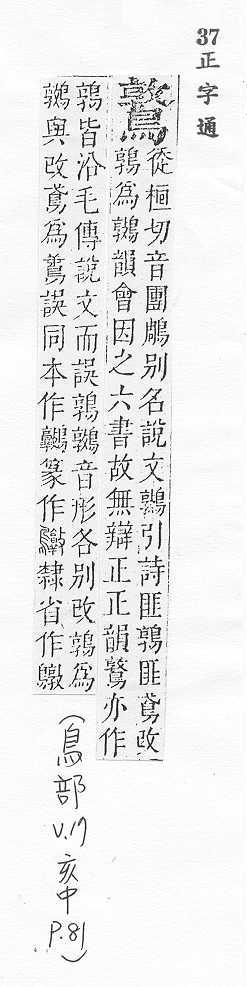 37 正字通
鷻
從桓切音團鵰別名說文鷻引詩匪鶉匪鳶改
鶉為鷻韻會因之六書故無辯正正韻鷻亦作
鶉皆沿毛傳說文而誤鶉鷻音形各別改鶉為
鷻與改鳶為誤同本作篆作隸省作
(鳥部 V.19 亥中 P.81)